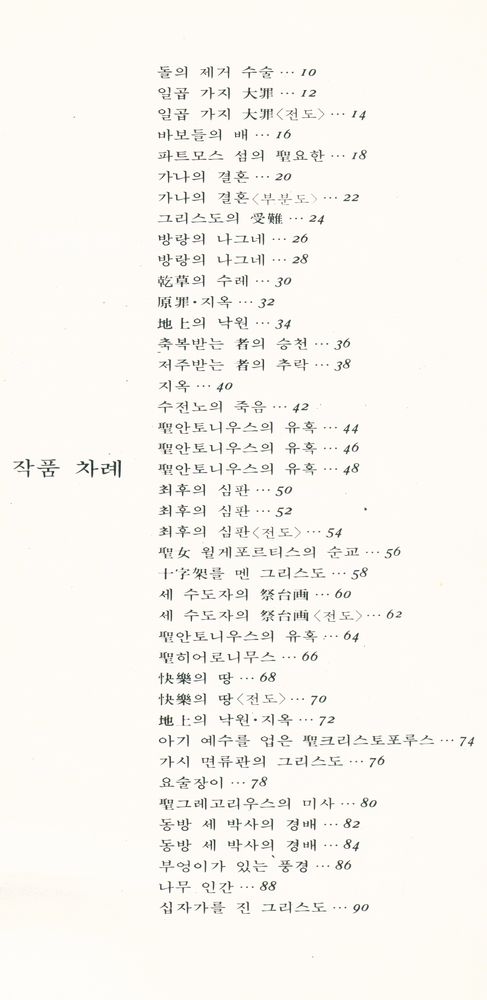 작품 차례
돌의 제거 수술 … 10
일곱 가지 大罪 … 12
일곱 가지 大罪〈전도〉… 14
바보들의 배 … 16
파트모스 섬의 聖요한 … 18
가나의 결혼 … 20
가나의 결혼〈부분도〉… 22
그리스도의 受難 … 24
방랑의 나그네 … 26
방랑의 나그네 … 28
乾草의 수레 … 30
原罪·지옥 … 32
地上의 낙원 … 34
축복받는 者의 승천 … 36
저주받는 者의 추락 … 38
지옥 … 40
수전노의 죽음 … 42
聖안토니우스의 유혹 … 44
聖안토니우스의 유혹 … 46
聖안토니우스의 유혹 … 48
최후의 심판 … 50
최후의 심판 … 52
최후의 심판〈전도〉… 54
聖女 윌게포르티스의 순교 … 56
十字架를 멘 그리스도 … 58
세 수도자의 祭台画 … 60
세 수도자의 祭台画〈전도〉… 62
聖안토니우스의 유혹 … 64
聖히어로니무스 … 66
快樂의 땅 … 68
快樂의 땅〈전도〉… 70
地上의 낙원·지옥 … 72
아기 예수를 업은 聖크리스토포루스 … 74
가시 면류관의 그리스도 … 76
요술장이 … 78
聖그레고리우스의 미사 … 80
동방 세 박사의 경배 … 82
동방 세 박사의 경배 … 84
부엉이가 있는 풍경 … 86
나무 인간 … 88
십자가를 진 그리스도 … 90